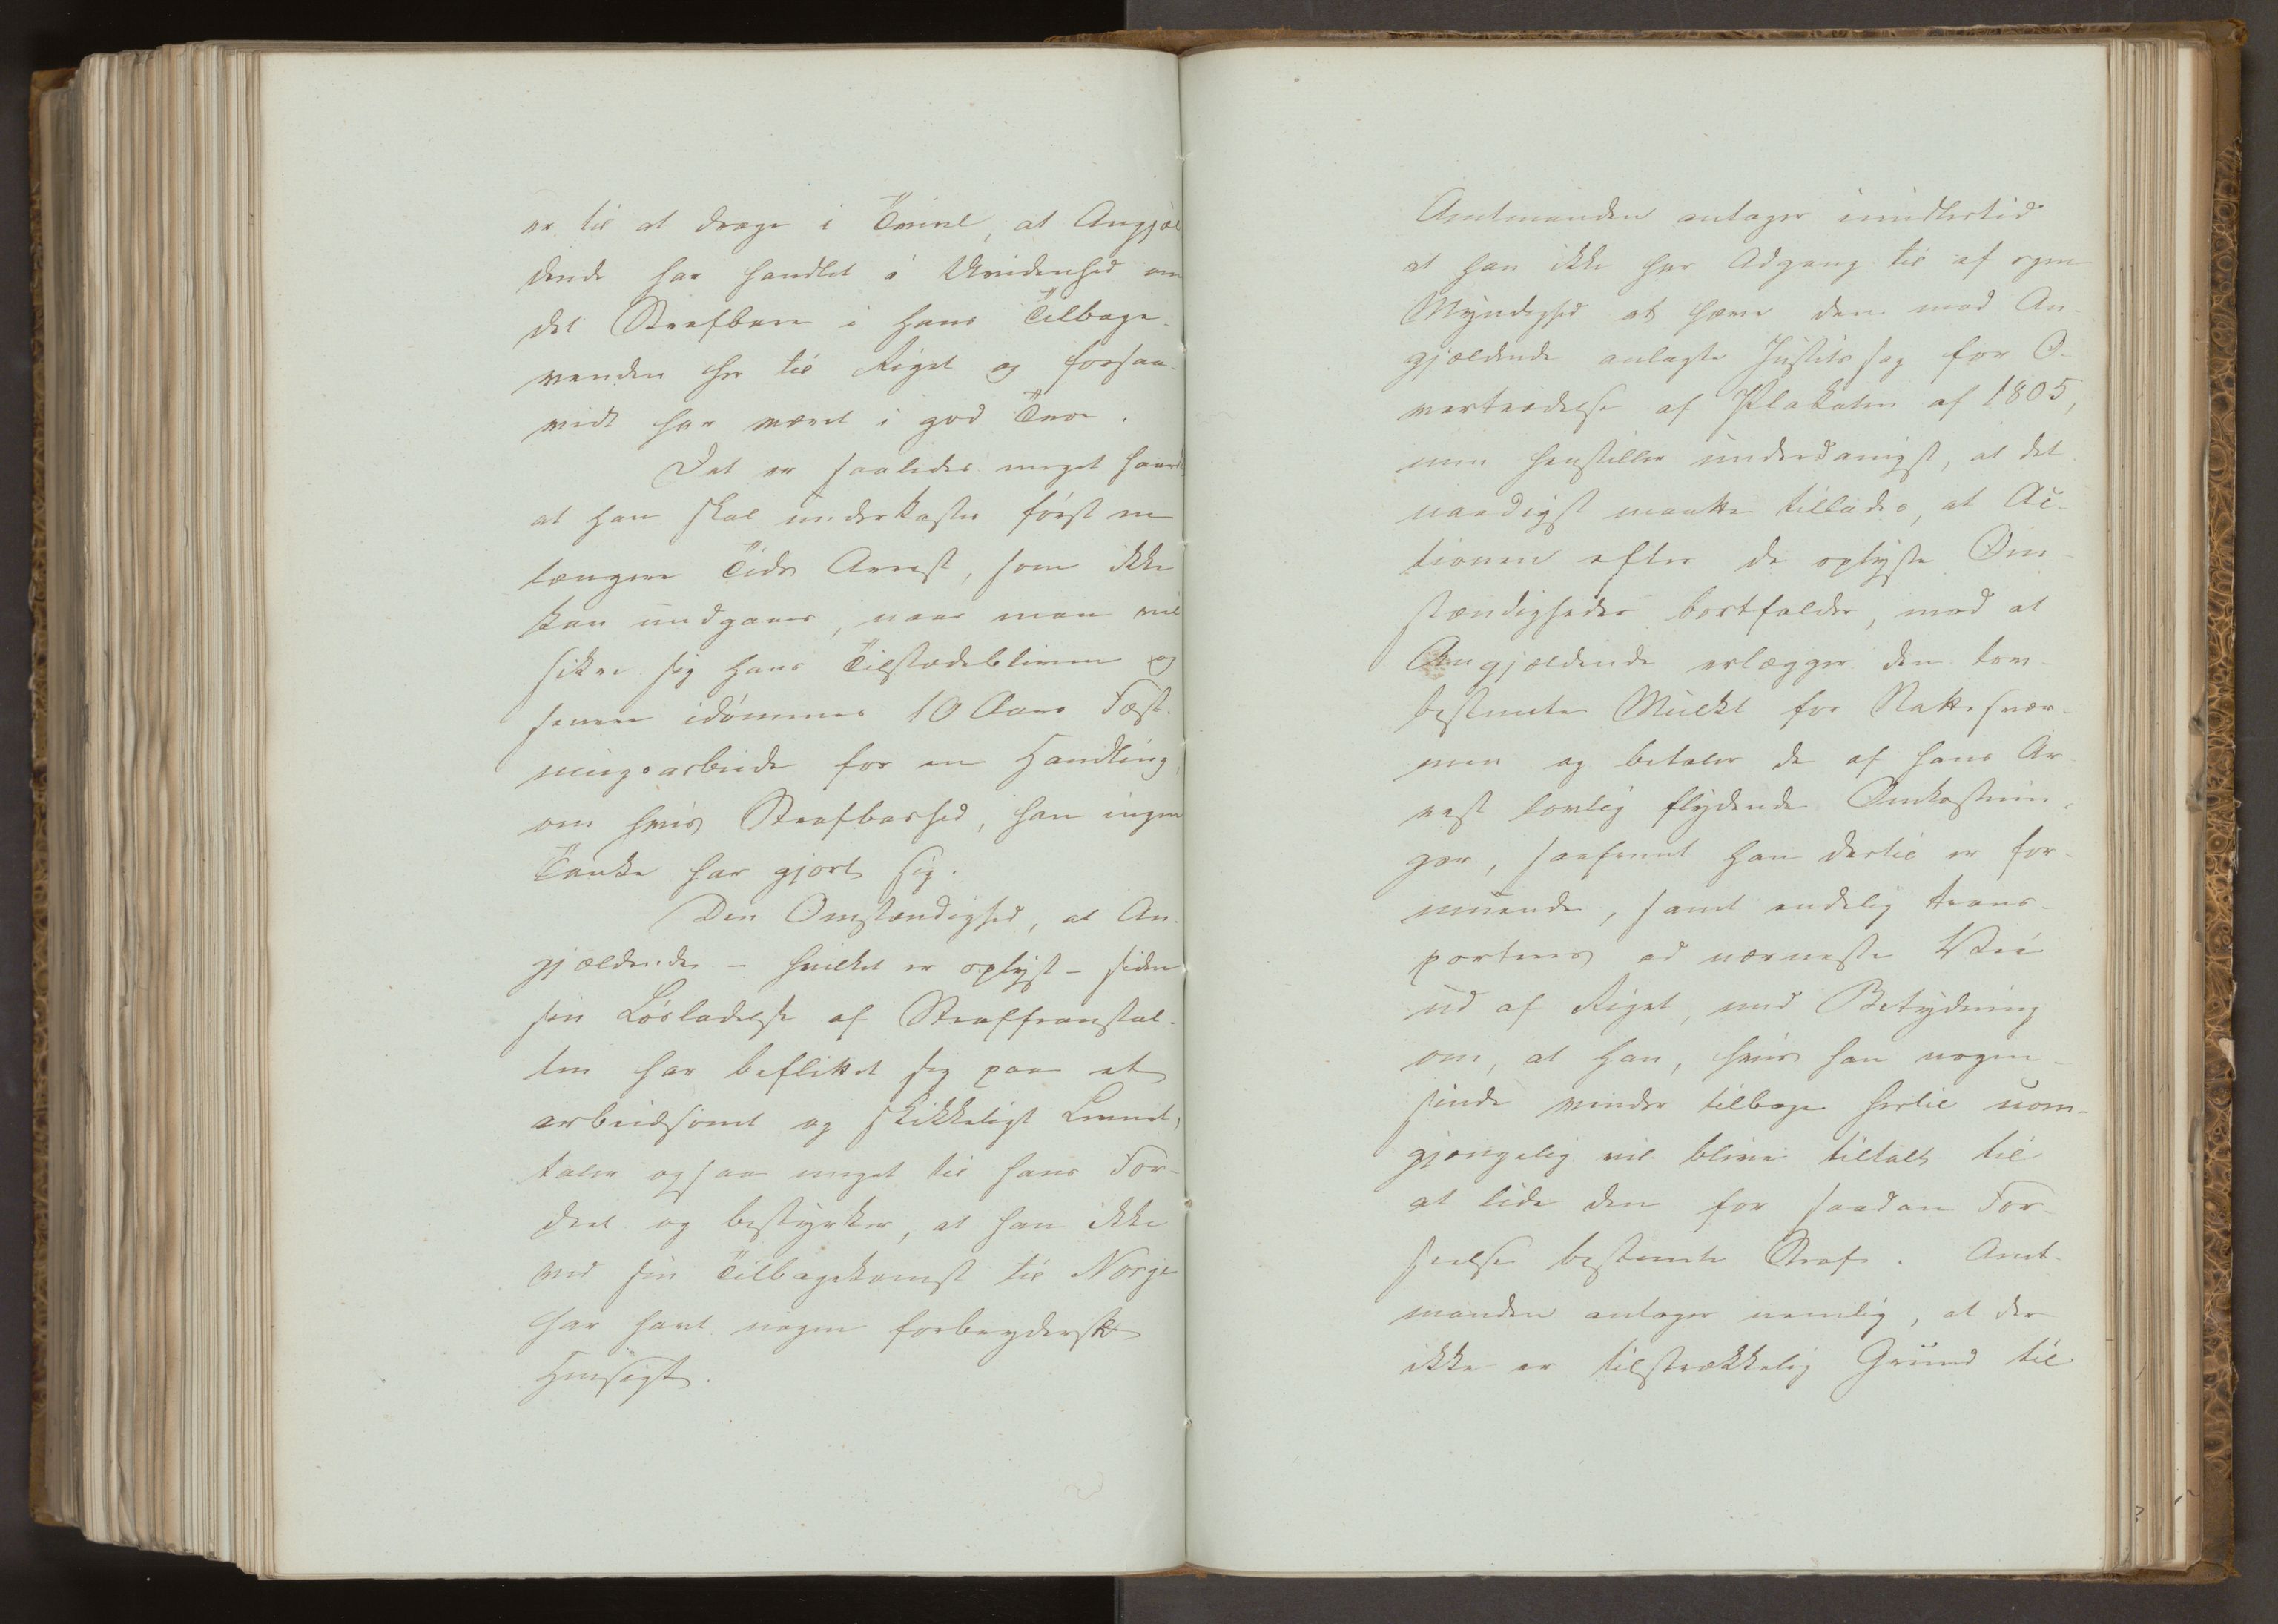 er til at drage i Tvivl, at Angjæl
dende har handlet i Uvidenhed om
det Strafbare i hans Tilbage-
venden her til Riget og forsaa-
vidt har været i god Troe.
Det er saaledes meget haardt
at han skal underkastes først en
længere Tids Arrest, som ikke
kan undgaaes, naar man vil
sikre sig hans Tilstædebliven og
senere idømmes 10 Aars Fæst-
ningsarbeide for en Handling,
om hvis Strafbarhed, han ingen
Tanke har gjort sig.
Den Omstændighed, at An-
gjældende - hvilket er oplyst - siden
sin Løsladelse af Straffeanstal-
ten har beflittet sig paa et
arbeidsomt og skikkeligt Levnet,
taler ogsaa meget til hans For-
deel og bestyrker, at han ikke
ved sin Tilbagekomst til Norge
har havt nogen forbrydersk
Hensigt.
Amtmanden antager imidlertid
at han ikke har Adgang til af egen
Myndighed at hæve den mod An-
gjældende anlagte Justitssag for O-
vertrædelse af Plakaten af 1805,
men henstiller underdanigst, at det
naadigst maatte tillades, at Ac-
tionen efter de oplyste Om-
stændigheder bortfalder, mod at
Angjældende erlægger den lov-
bestemte Mulkt for Nattesvær-
men og betaler de af hans Ar-
rest lovlig flydende Omkostnin-
ger, saafremt han dertil er for-
muende, samt endelig trans-
porteres ad nærmeste Vei
ud af Riget, med Betydning
om, at han, hvis han nogen-
sinde vender tilbage hertil uom-
gjængelig vil blive tiltalt til
at lide den for saadan For-
seelse bestemte Straf. Amt-
manden antager nemlig, at der
ikke er tilstrækkelig Grund til